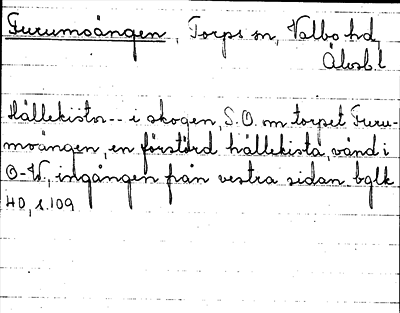 Furumoängen, Torps sn, Valbo hd,
Älvsb.l
Hällekistor -- i skogen, S.O. om torpet Furu-
moängen, en förstörd hällekista, vänd i
O-W, ingången från vestra sidan bglk
40, s.109